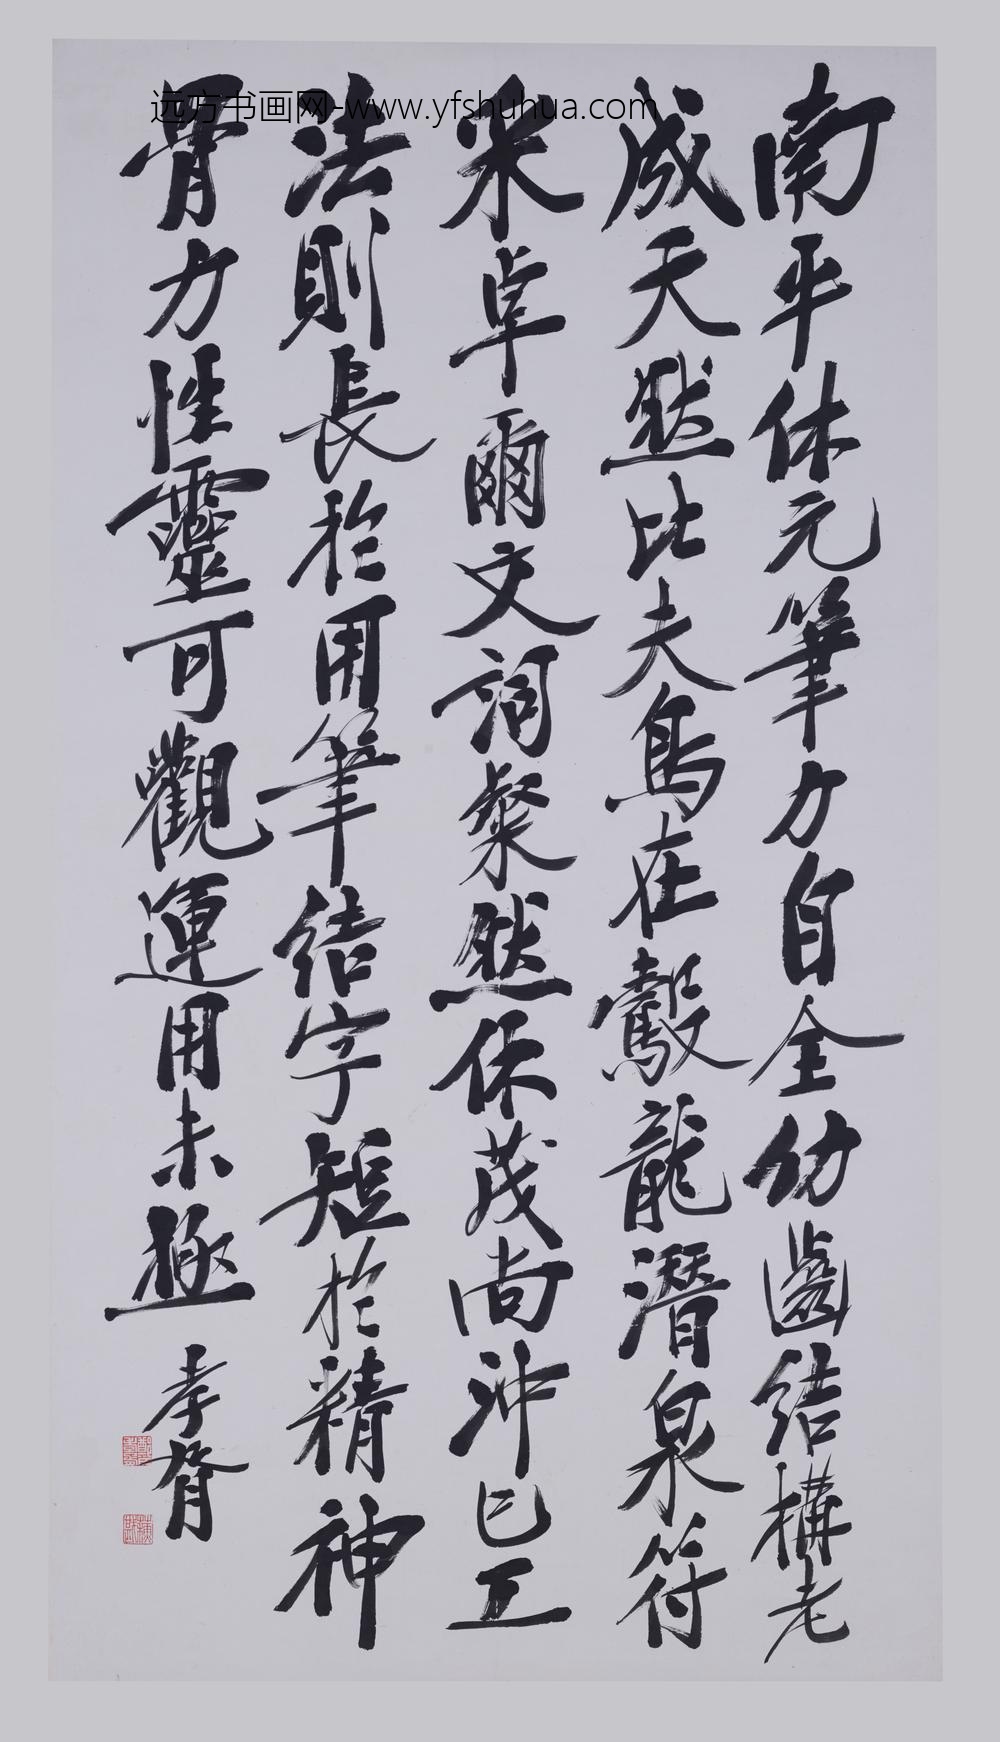 远方书画网-www.yfshuhua.com
南平休元筆力自全幼齒結構老
成天然比夫鳥在鷇龍潛泉符
采卓爾文詞粲然休茂尚沖已工
法則長於用筆結字短於精神
骨力性靈可觀運用未極
孝胥